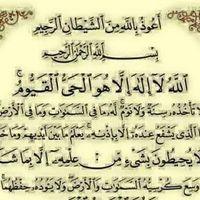 أَعُوذُ بِاللَّهِ مِنَ الشَّيْطَانِ الرَّجِيمِ
بِسْمِ اللَّهِ الرَّحْمَٰنِ الرَّحِيمِ
اللَّهُ لَا إِلَٰهَ إِلَّا هُوَ الْحَىُّ الْقَيُّومُ
لَا تَأْخُذُهُ سِنَةٌ وَلَا نَوْمٌ لَهُ مَا فِى السَّمَٰوَٰتِ وَمَا فِى الْأَرْضِ
الَّذِى يَشْفَعُ عِنْدَهُ إِلَّا بِإِذْنِهِ يَعْلَمُ مَا بَيْنَ أَيْدِيهِمْ وَمَا
لَا يُحِيطُونَ بِشَىْءٍ مِنْ عِلْمِهِ إِلَّا بِمَا شَا
وَسِعَ كُرْسِيُّهُ السَّمَٰوَٰتِ وَالْأَرْضَ وَلَا يَئُودُهُ حِفْظُهُمَا